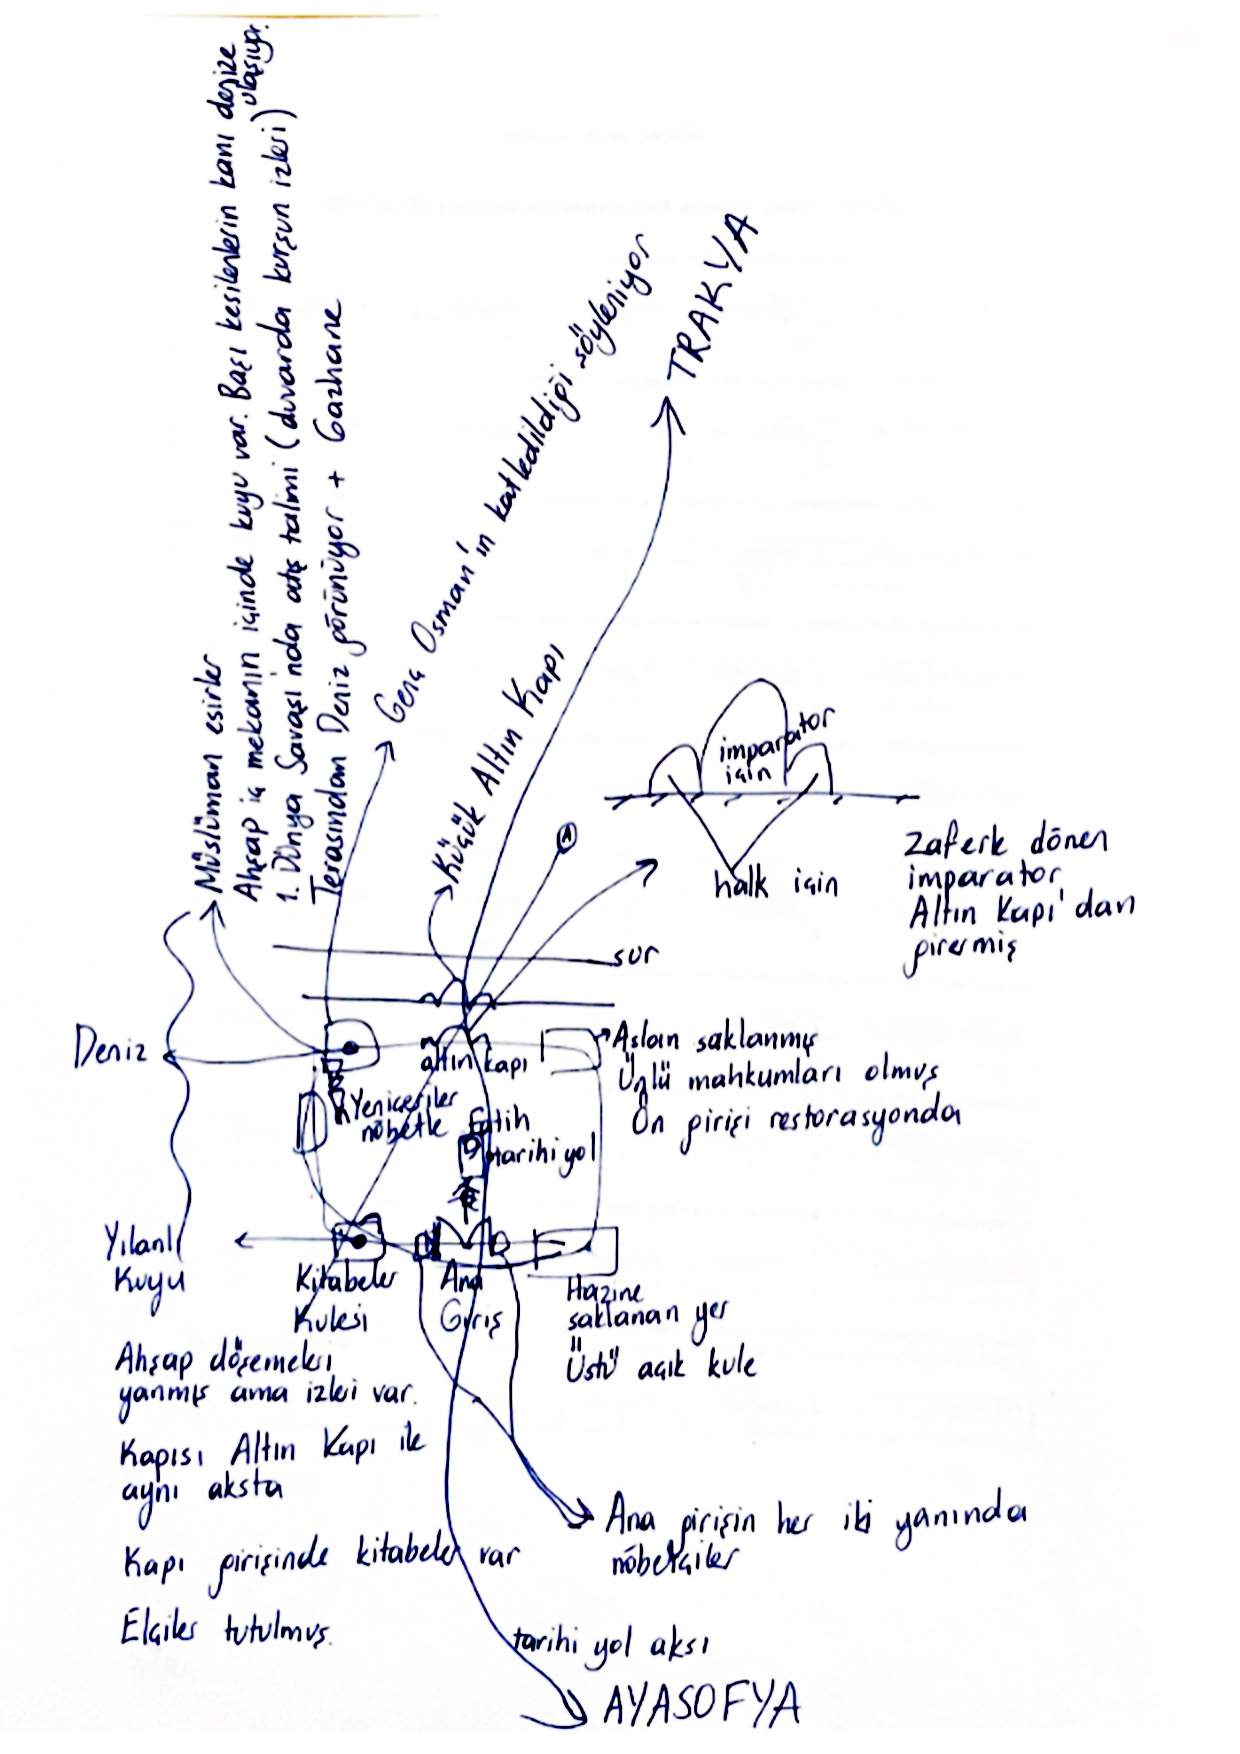 Müslüman esirler
Ahşap iç mekanın içinde kuyu var. Başı kesilenlerin kanı denize ulaşıyor.
1. Dünya Savaşı'nda atış talimi (duvarda kurşun izleri)
Terasından Deniz görünüyor + Gazhane
Genç Osman'ın katledildiği söyleniyor
Küçük Altın Kapı
TRAKYA
A
imparator
için
halk için
Zaferle dönen
imparator
Altın Kapı'dan
girermiş
sur
Deniz
altın kapı
Aslan saklanmış
Ünlü mahkumları olmuş
Ön girişi restorasyonda
Yeniçeriler
nöbette
Fatih
tarihi yol
Yılanlı
Kuyu
Kitabeler
Kulesi
Ana
Giriş
Hazine
saklanan yer
Üstü açık kule
Ahşap döşemeleri
yanmış ama izleri var.
Kapısı Altın Kapı ile
aynı aksta
Kapı girişinde kitabeler var
Elçiler tutulmuş.
Ana girişin her iki yanında
nöbetçiler
tarihi yol aksı
AYASOFYA